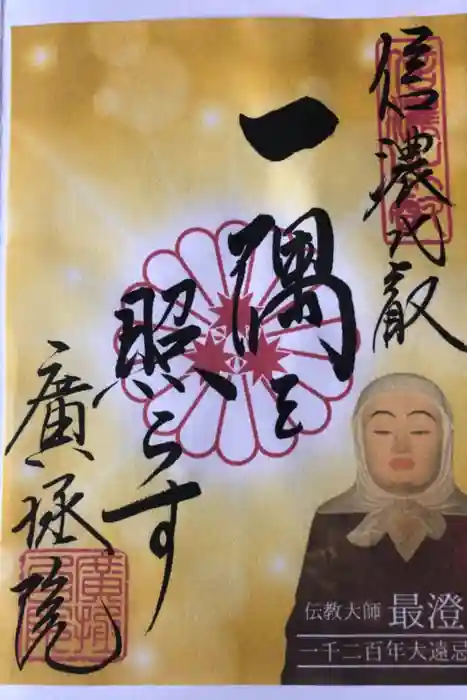 信濃比叡
一隅を
照らす
廣拯院
伝教大師 最澄
一千二百年大遠忌